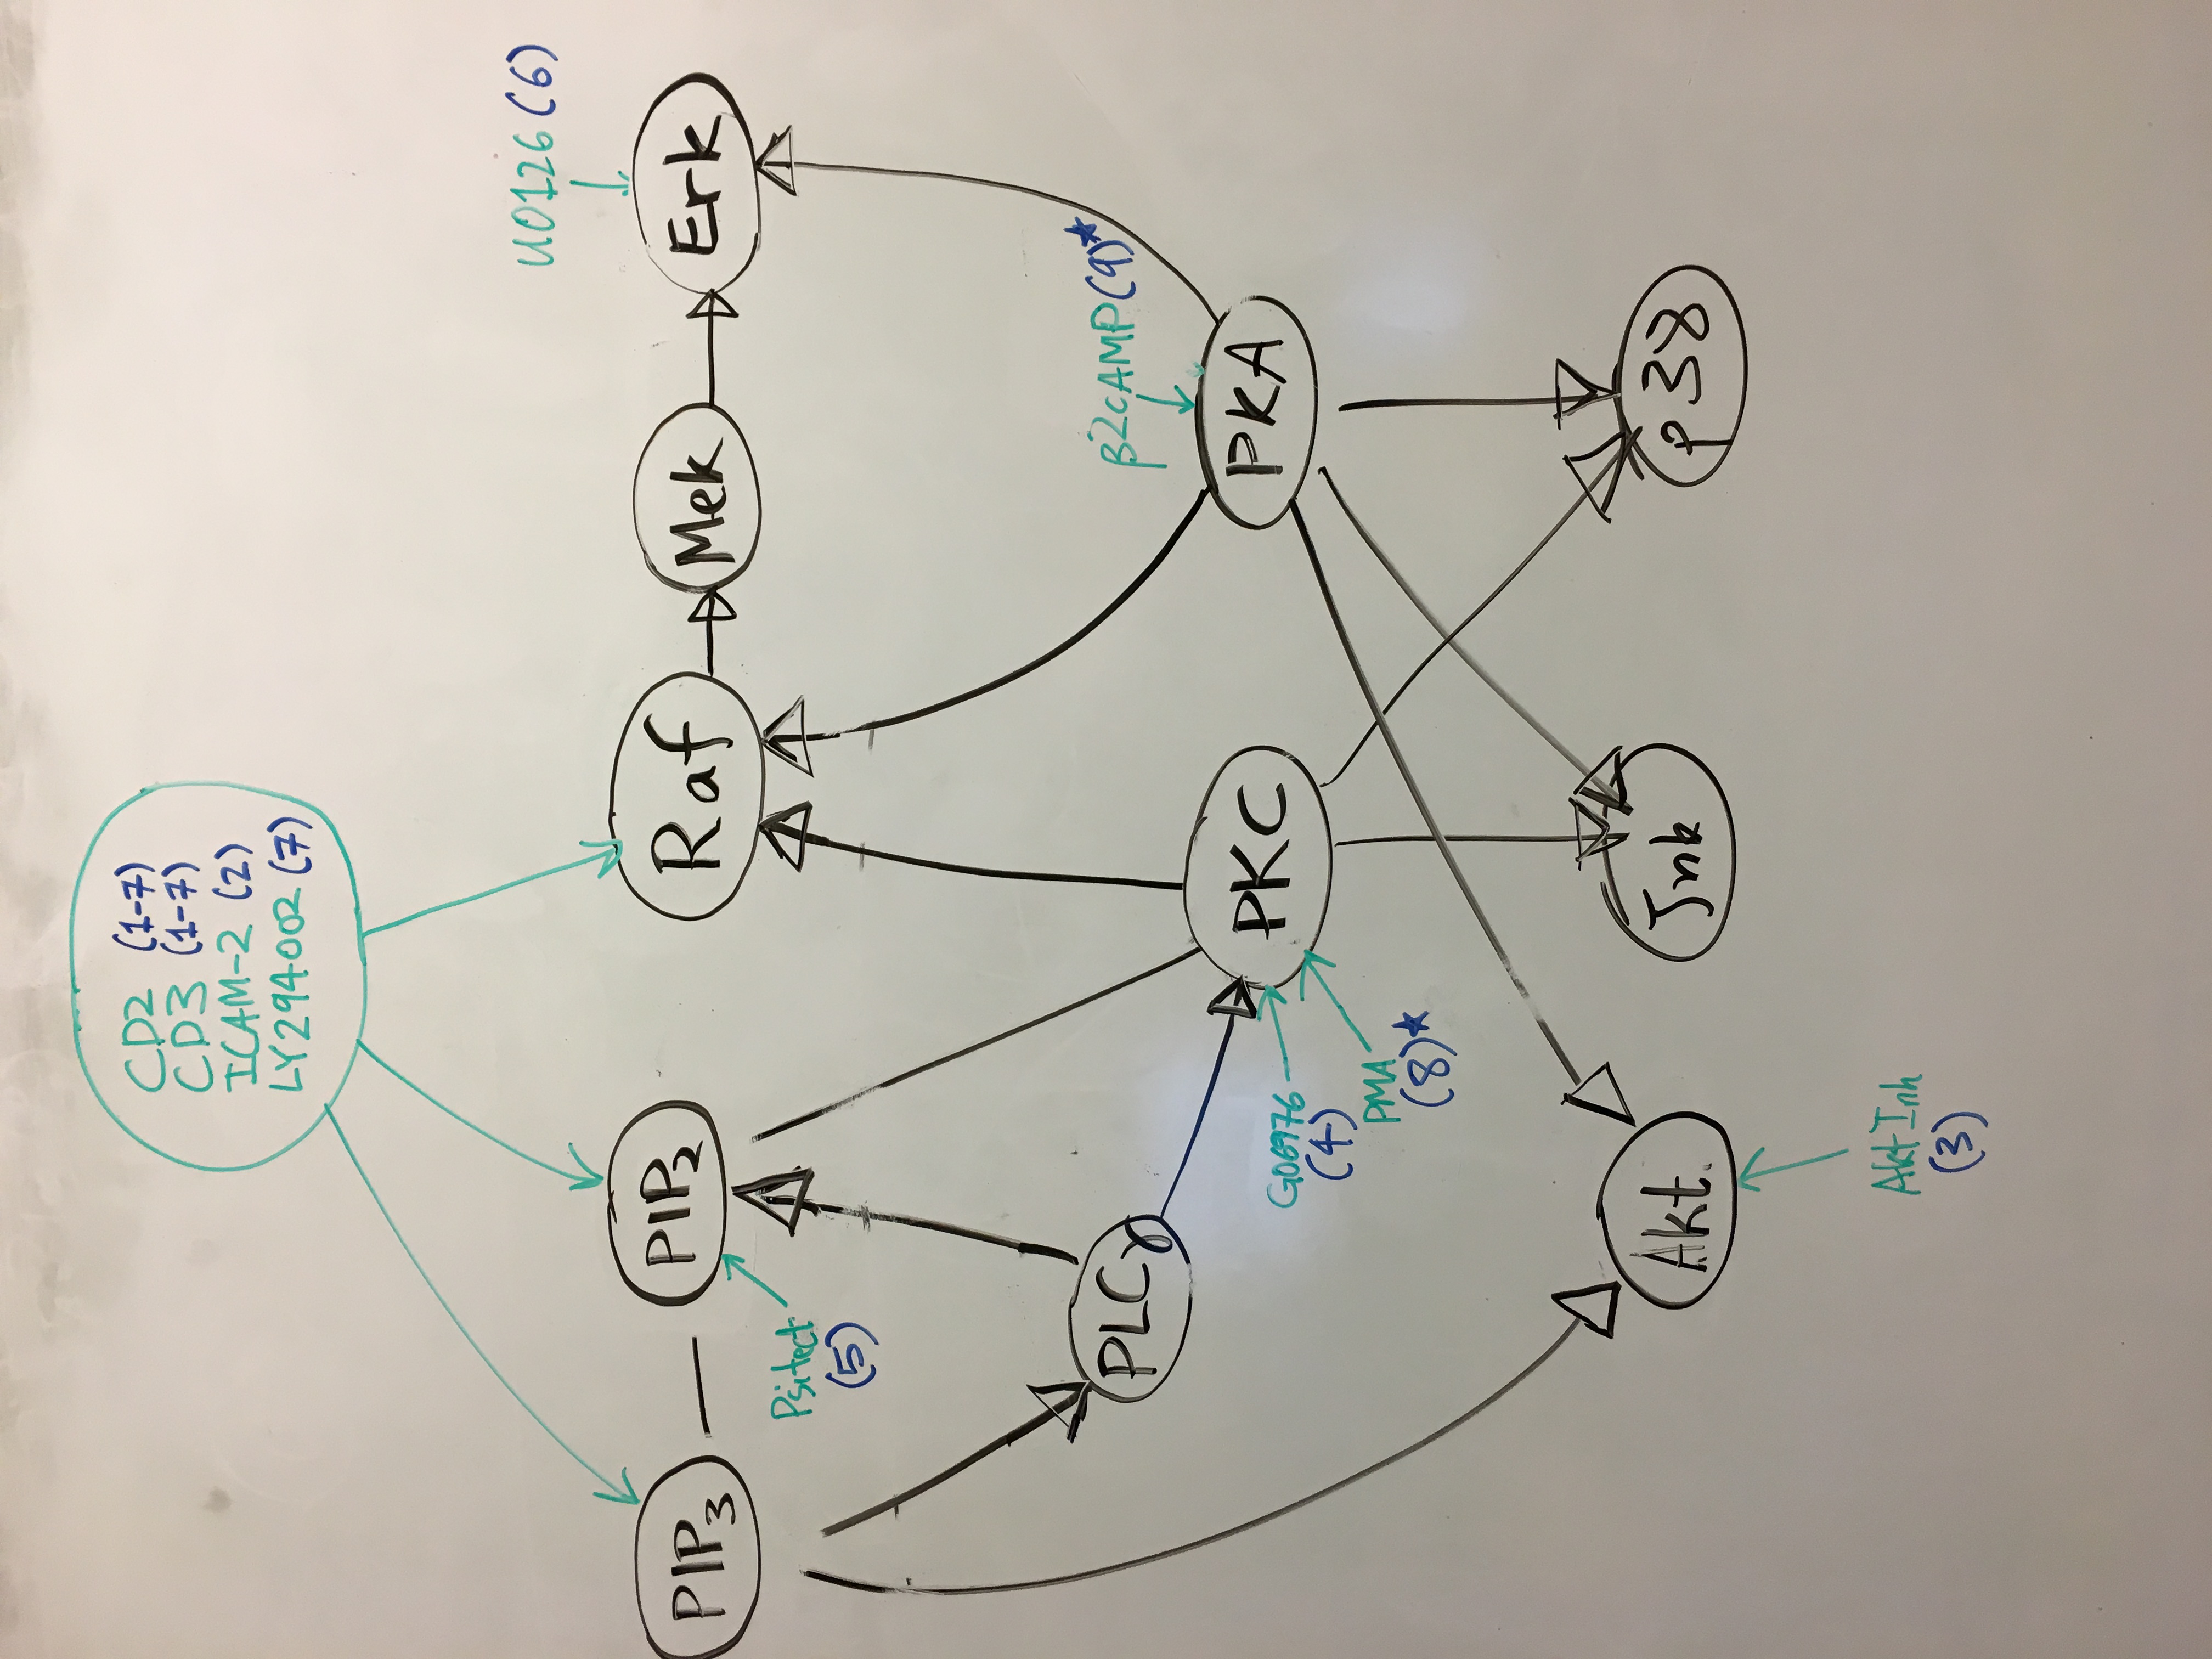 CD2 (1-7)
CD3 (1-7)
ICAM-2 (2)
LY294002 (7)
U0126 (6)
PIP₃
PIP₂
Raf
Mek
Erk
Psitect
(5)
PLCγ
β2cAMP (9)★
PKC
PKA
G06976
(4)
PMA
(8)★
Akt.
Jnk
p38
Akt Inh
(3)